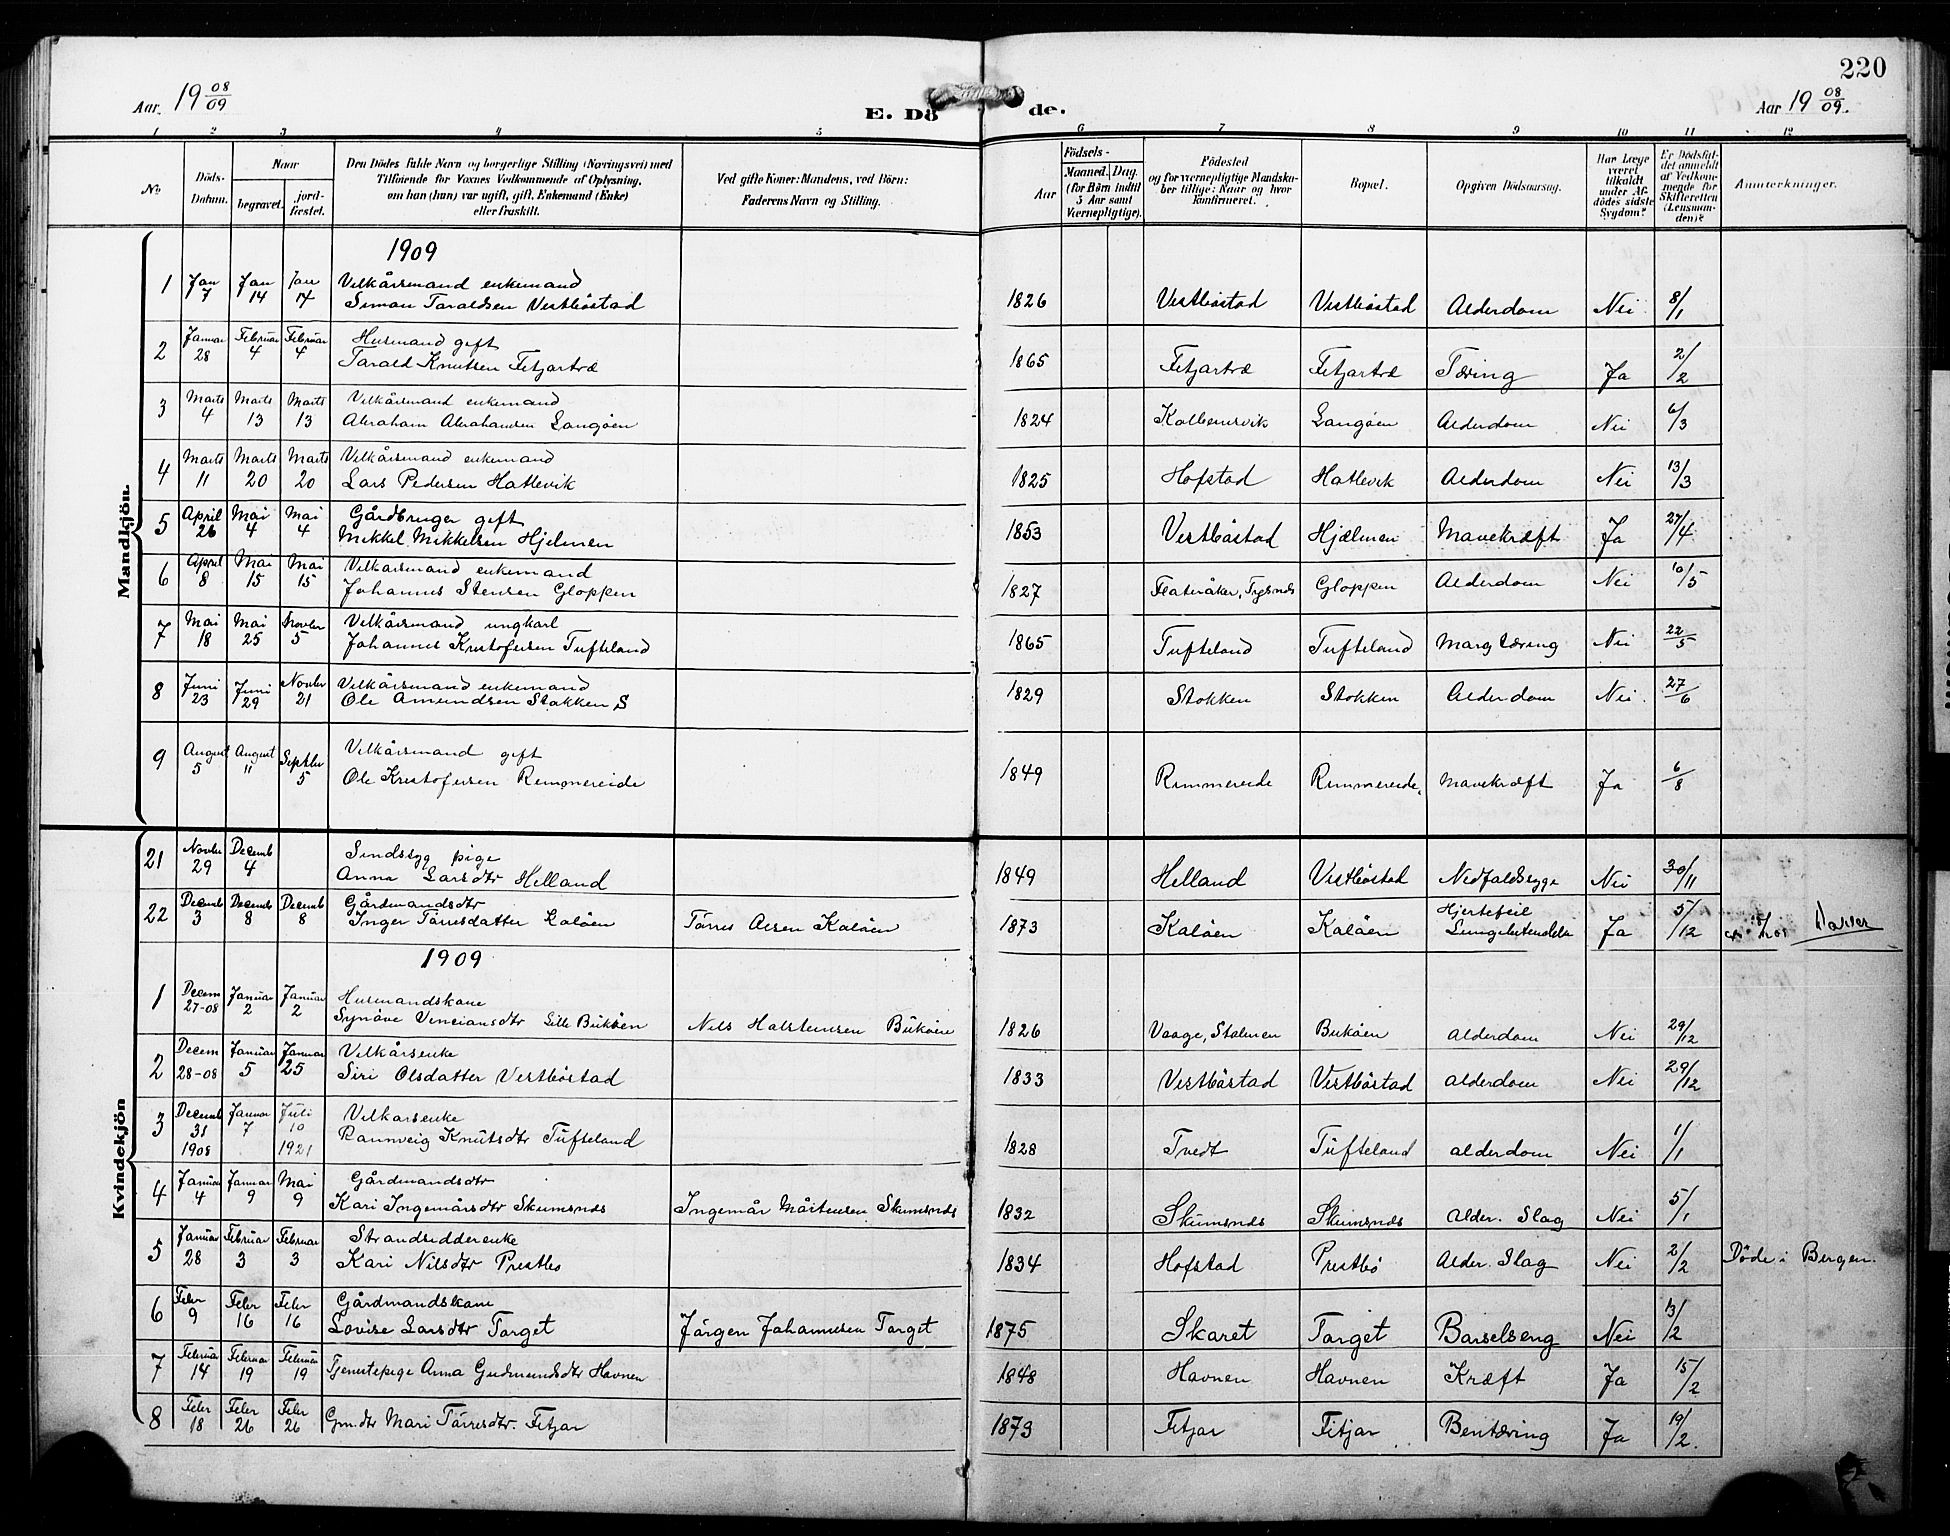 220
Aar 19 08/09
E. Döde.
Aar 19 08/09.
1 2 3 4 5 6 7 8 9 10 11 12
No.
Döds-Datum.
Naar
begravet.
jordfæstet.
Den Dödes fulde Navn og borgerlige Stilling (Næringsvei) med
Tilföiende for Voxnes Vedkommende af Oplysning,
om han (hun) var ugift, gift, Enkemand (Enke)
eller fraskilt.
Ved gifte Koner: Mandens, ved Börn:
Faderens Navn og Stilling.
Födsels-
Aar
Maaned. Dag.
(for Börn indtil
5 Aar samt
Værnepligtige).
Födested
og for værnepligtige Mandskaber tillige: Naar og hvor
konfirmeret.
Bopæl.
Opgiven Dödsaarsag.
Har Læge
været
tilkaldt
under Afdödes sidste
Sygdom?
Er Dödsfaldet anmeldt
af Vedkommende for
Skifteretten
(Lensmanden)?
Anmærkninger.
Mandkjön.
1909
1 Jan 7 Jan 14 Jan 14 Velkårsmand enkemand
Simon Taraldsen Vestbøstad 1826 Vestbøstad Vestbøstad Alderdom Nei 8/1
2 Januar 28 Februar 4 Februar 4 Husmand gift
Tarald Knutsen Fitjartræ 1865 Fitjartræ Fitjartræ Tæring Ja 2/2
3 Marts 4 Marts 13 Marts 13 Velkårsmand enkemand
Abraham Abrahamsen Langøen 1824 Kolbensvik Langøen Alderdom Nei 6/3
4 Marts 11 Marts 20 Marts 20 Velkårsmand enkemand
Lars Pedersen Hatlevik 1825 Hofstad Hatlevik Alderdom Nei 13/3
5 April 26 Mai 4 Mai 4 Gårdbruger gift
Mikkel Mikkelsen Hjelmen 1853 Vestbøstad Hjælmen Mavekræft Ja 27/4
6 April 8 Mai 15 Mai 15 Velkarsmand enkemand
Johannes Stensen Gloppen 1827 Flateråker, Tysnes Gloppen Alderdom Nei 10/5
7 Mai 18 Mai 25 Novbr 5 Velkårsmand ungkarl
Johannes Kristofersen Tufteland 1865 Tufteland Tufteland Margtæring Nei 22/5
8 Juni 23 Juni 29 Novbr 21 Velkårsmand enkemand
Ole Amundsen Stokken S 1829 Stokken Stokken Alderdom Nei. 27/6
9 August 5 August 11 Septbr 5 Velkårsmand gift
Ole Kristofersen Rimmereide 1849 Rimmereide Rimmereide, Mavekræft Ja 6/8
Kvindekjön
21 Novbr 29 Decemb 4 Sindssyg pige
Anna Larsdtr Helland 1849 Helland Vestbøstad Nedfaldssyge Nei 30/11
22 Decemb 3 Decemb 8 Decemb 8 Gårdmandsdtr
Inger Tørresdatter Kaløen Tørres Aesen Kaløen 1873 Kaløen Kaløen Hjertefeil
Lungebetendelse Ja 5/12
1909
1 Decem 27-08 Januar 2 Januar 2 Husmandskone
Synøve Vinciansdtr Lille Bukøen Nils Halsteinsen Bukøen 1826 Vaage, Stolmen Bukøen Alderdom Nei 29/12
2 Decem 28-08 Januar 5 Januar 25 Velkårsenke
Siri Olsdatter Vestbøstad 1833 Vestbøstad Vestbøstad Alderdom Nei 29/12
3 Decemb 31 1908 Januar 7 Juli 10 1921 Velkarsenke
Rannveig Knutsdtr Tufteland 1828 Tvedt Tufteland Alderdom Nei 1/1
4 Januar 4 Januar 9 Mai 9 Gårdmandsdtr
Kari Ingemårsdtr Skumsnds Ingemår Mårtensen Skumsnds 1832 Skumsnds Skumsnds Alder. Slag Nei 5/1
5 Januar 28 Februar 3 Februar 3 Strandsidderenke
Kari Nilsdtr Prestbø 1834 Hofstad Prestbø Alder. Slag Nei 2/2 Døde i Bergen.
6 Febr 9 Febr 16 Febr 16 Gårdmandskone
Lovise Larsdtr Tørget Jørgen Johannesen Tørget 1875 Skaret Tørget Barselseng Nei 13/2
7 Februar 14 Februar 19 Februar 19 Tjenestepige Anna Gudmundsdtr Havnen 1848 Havnen Havnen Kræft Ja 15/2
8 Febr 18 Febr 26 Febr 26 Gm.dtr Mari Tørresdtr. Fitjar 1873 Fitjar Fitjar Bentæring Ja 19/2.